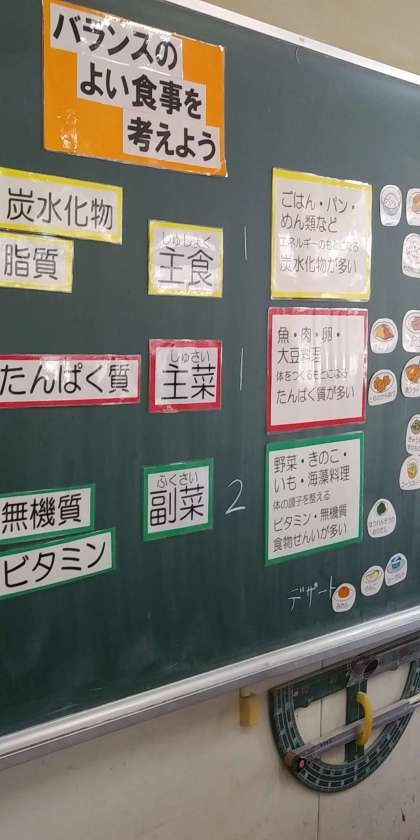 バランスの
よい食事を
考えよう
炭水化物
脂質
しゅしょく
主食
1
ごはん・パン・
めん類など
エネルギーのもとになる
炭水化物が多い
たんぱく質
しゅさい
主菜
1
魚・肉・卵・
大豆料理
体をつくるもとになる
たんぱく質が多い
無機質
ビタミン
ふくさい
副菜
2
野菜・きのこ・
いも・海藻料理
体の調子を整える
ビタミン・無機質
食物せんいが多い
デザート
みかん